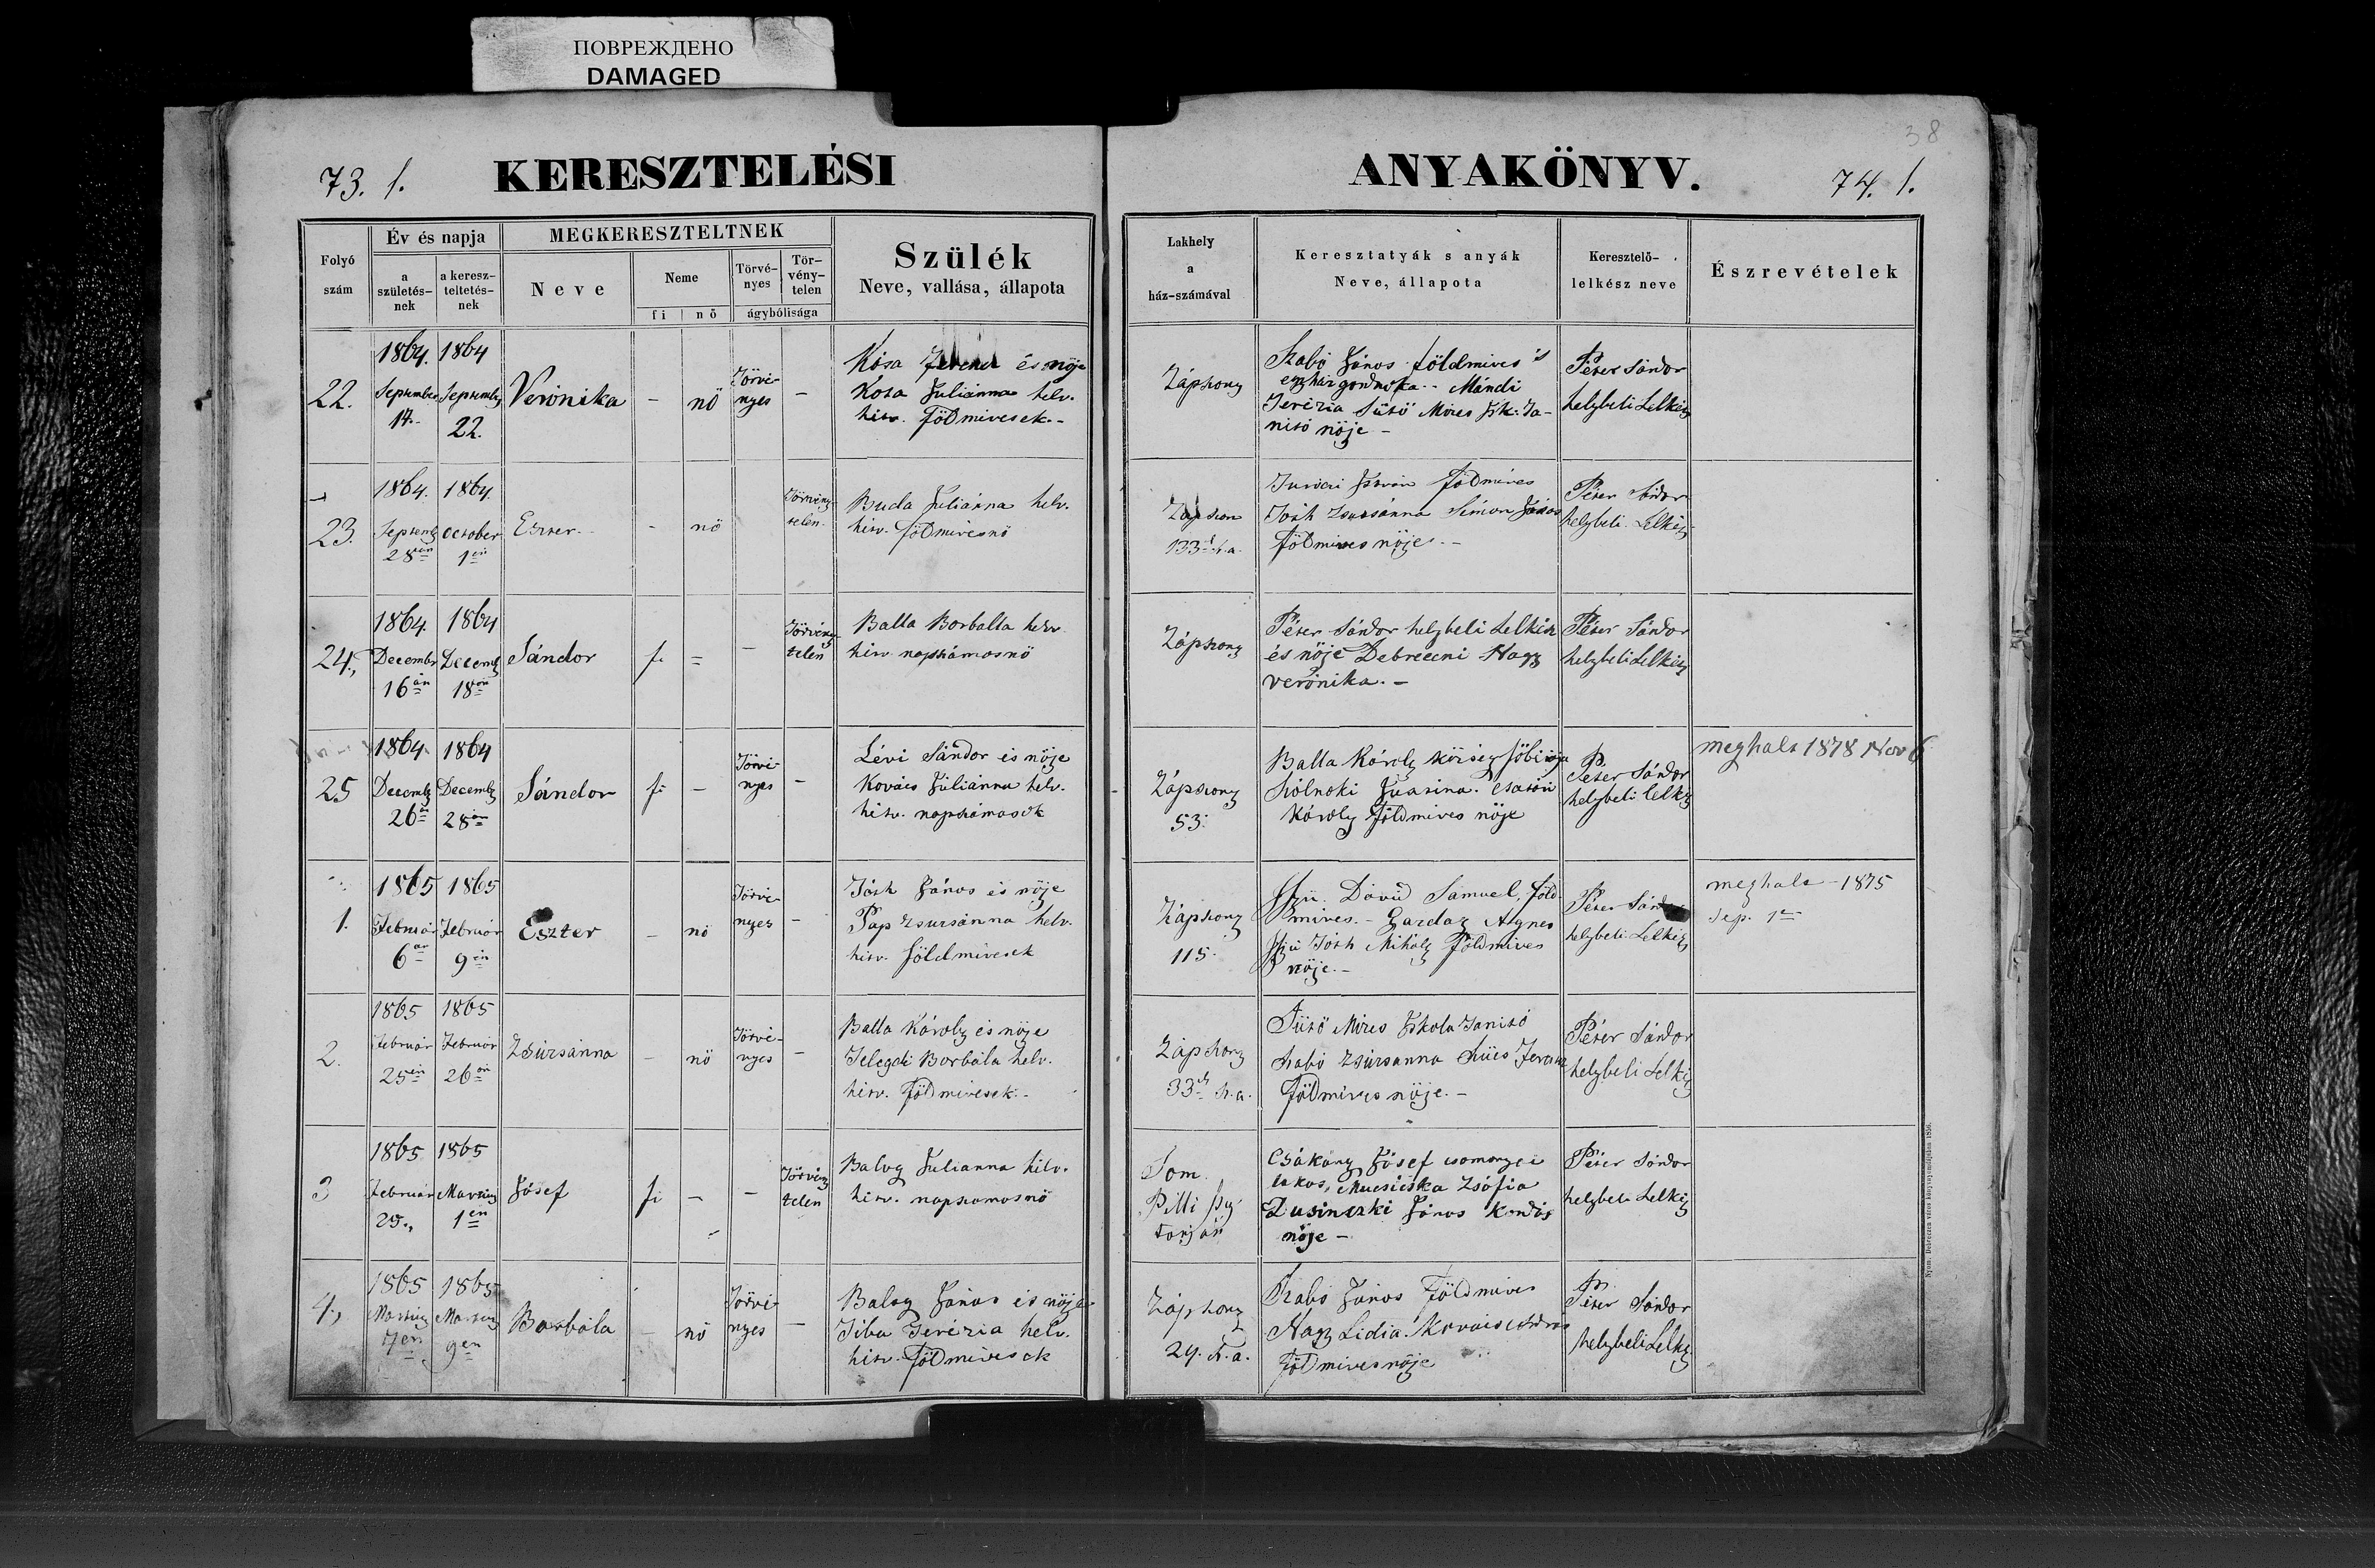 ПОВРЕЖДЕНО
DAMAGED
38
73. 1.
KERESZTELÉSI
ANYAKÖNYV.
74. 1.
Folyó szám
Év és napja
a születés-nek
a keresz-teltetés-nek
MEGKERESZTELTNEK
Neve
Neme
fi
nő
Törvé-nyes
Tör-vény-telen
ágybólisága
Szülék
Neve, vallása, állapota
Lakhely
a
ház-számával
Keresztatyák s anyák
Neve, állapota
Keresztelő-
lelkész neve
Észrevételek
22.
1864. September 14.
1864 Septemb 22.
Veronika
-
nö
Törvé-nyes
-
Kósa és nöje
Kosa Juliánna helv.
hitv. Földmivesek.-
Zápszony
Szabó János földmives 's
egyház gondnoka.- Mándi
Terézia Sütö Móses Isk. Ta-
nitó nöje -
Péter Sándor
helybeli Lelkész
23.
1864. Septemb 28án
1864. October 1én
Eszter.-
-
nö
Törvény-telen
Buda Juliánna helv.
hitv. földmivesnö
133 h.a.
István Földmives
Tóth Zsuzsánna Simon János
földmives nöje.-
Péter Sándor
helybeli Lelkész
24.,
1864. Decembr 16án
1864 Decemb 18án
Sándor
fi
=
-
Törvény-telen
Balla Borballa helv
hitv. napszámosnö
Zápszony
Péter Sándor helybeli Lelkész
és nöje Debreceni Nagy
Verónika.-
Péter Sándor
helybeli Lelkész
25
1864. Decemb 26án
1864 Decemb 28án
Sándor
fi
-
Törvé-nyes
-
Lévi Sándor és nöje
Kovács Juliánna helv.
hitv. napszámosok
Zápszony
53.
Balla Károly község
Szólnoki
Károly Földmives nöje
Péter Sándor
helybeli lelkész
meghalt 1878 Nov 6
1.
1865 Február 6án
1865 Február 9én
Eszter
-
nö
Törvé-nyes
-
Tóth János és nöje
Pap Zsuzsánna helv.
hitv. földmivesek
Zápszony
115.
Ifju Dávid Samuel, Föld
mives.- Gazdag Agnes
Ifju Tóth Mihály Földmives
nöje.-
Péter Sándor
helybeli Lelkész
meghalt - 1875
Sep. 1
2.
1865 Február 25én
1865 Február 26án
Zsúzsánna
-
nö
Törvé-nyes
-
Balla Károly és nöje
Telegdi Borbála helv.
hitv. Földmivesek.-
Zápszony
33 h.a.
Sütö Móses Iskola Tanitó
Szabó Zsúzsanna Szücs Ferencz
Földmives nöje.-
Péter Sándor
helybeli Lelkész
3
1865 Február 25.,
1865 Martius 1én
Jósef
fi
-
-
Törvény telen
Balog Julianna helv.
hitv. napszamosnö
Csákány Jósef
lakos, Zsófia
János Kondás
nöje -
Péter Sándor
helybeli Lelkész
4.,
1865 Martius 7én
1865 Martius 9én
Borbála
-
nö
Törvé-nyes
-
Balog János és nöje
Tiba Terézia helv.
hitv. Földmivesek
Zápszony
29. h.a.
Szabó János Földmives
Nagy Lidia. Kovács
földmives nöje
Péter Sándor
helybeli Lelkész
Nyom. Debreczen város könyvnyomdájában 1856.